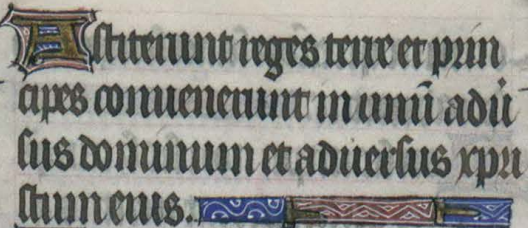 Astiterunt reges terre et prin
cipes conuenerunt in unū adū
sus dominum et aduersus xpri
stum eius.